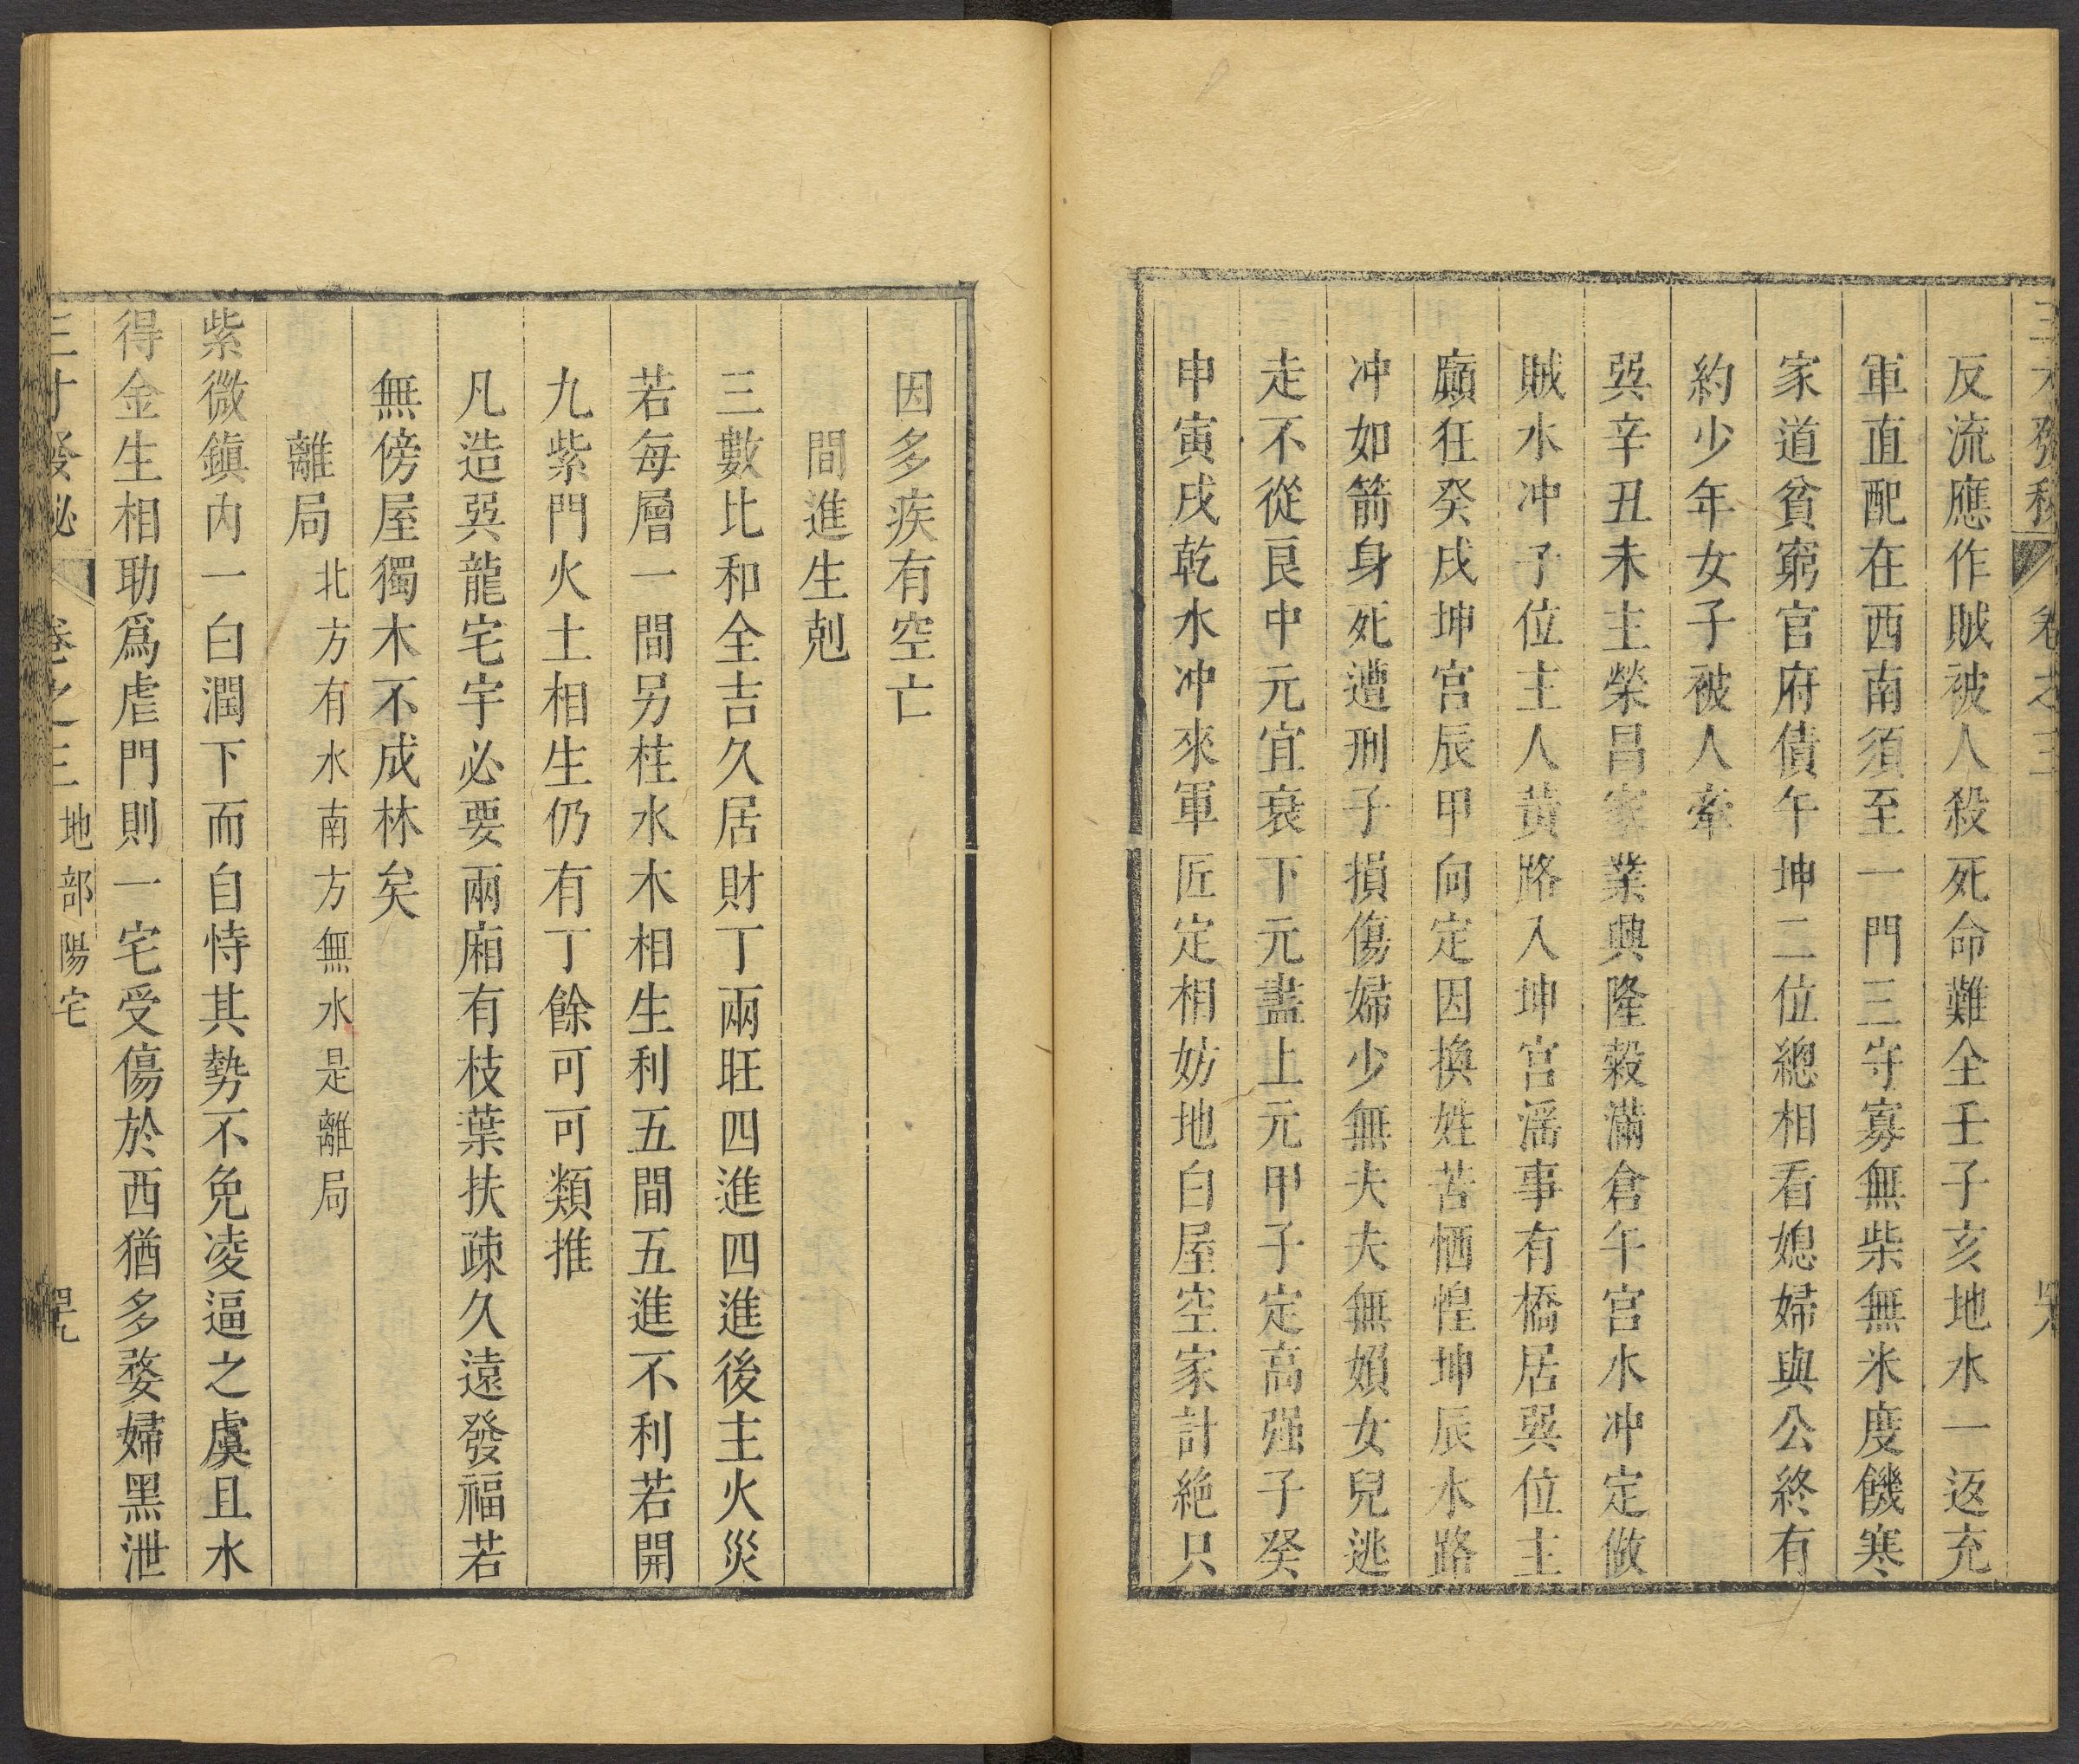 三才發秘 卷之三
反流應作賊被人殺死命難全壬子亥地水一返充
軍直配在西南須至一門三守寡無柴無米度饑寒
家道貧窮官府債午坤二位總相看媳婦與公終有
約少年女子被人牽
巽辛丑未主榮昌家業興隆穀滿倉午宮水冲定做
賊水冲子位主人黃路入坤宮滛事有橋居巽位主
癲狂癸戌坤宮辰甲向定因換姓苦恓惶坤辰水路
冲如箭身死遭刑子損傷婦少無夫夫無嬾女兒逃
走不從良中元宜衰下元盡上元甲子定高强子癸
申寅戌乾水冲來軍匠定相妨地白屋空家計絶只
因多疾有空亡
間進生剋
三數比和全吉久居財丁兩旺四進四進後主火災
若每層一間另柱水木相生利五間五進不利若開
九紫門火土相生仍有丁餘可可類推
凡造巽龍宅宇必要兩廂有枝葉扶疎久遠發福若
無傍屋獨木不成林矣
離局 北方有水南方無水是離局
紫微鎮內一白潤下而自恃其勢不免凌逼之虞且水
得金生相助爲虐門則一宅受傷於西猶多婺婦黑泄
三才發秘 卷之三 地部陽宅